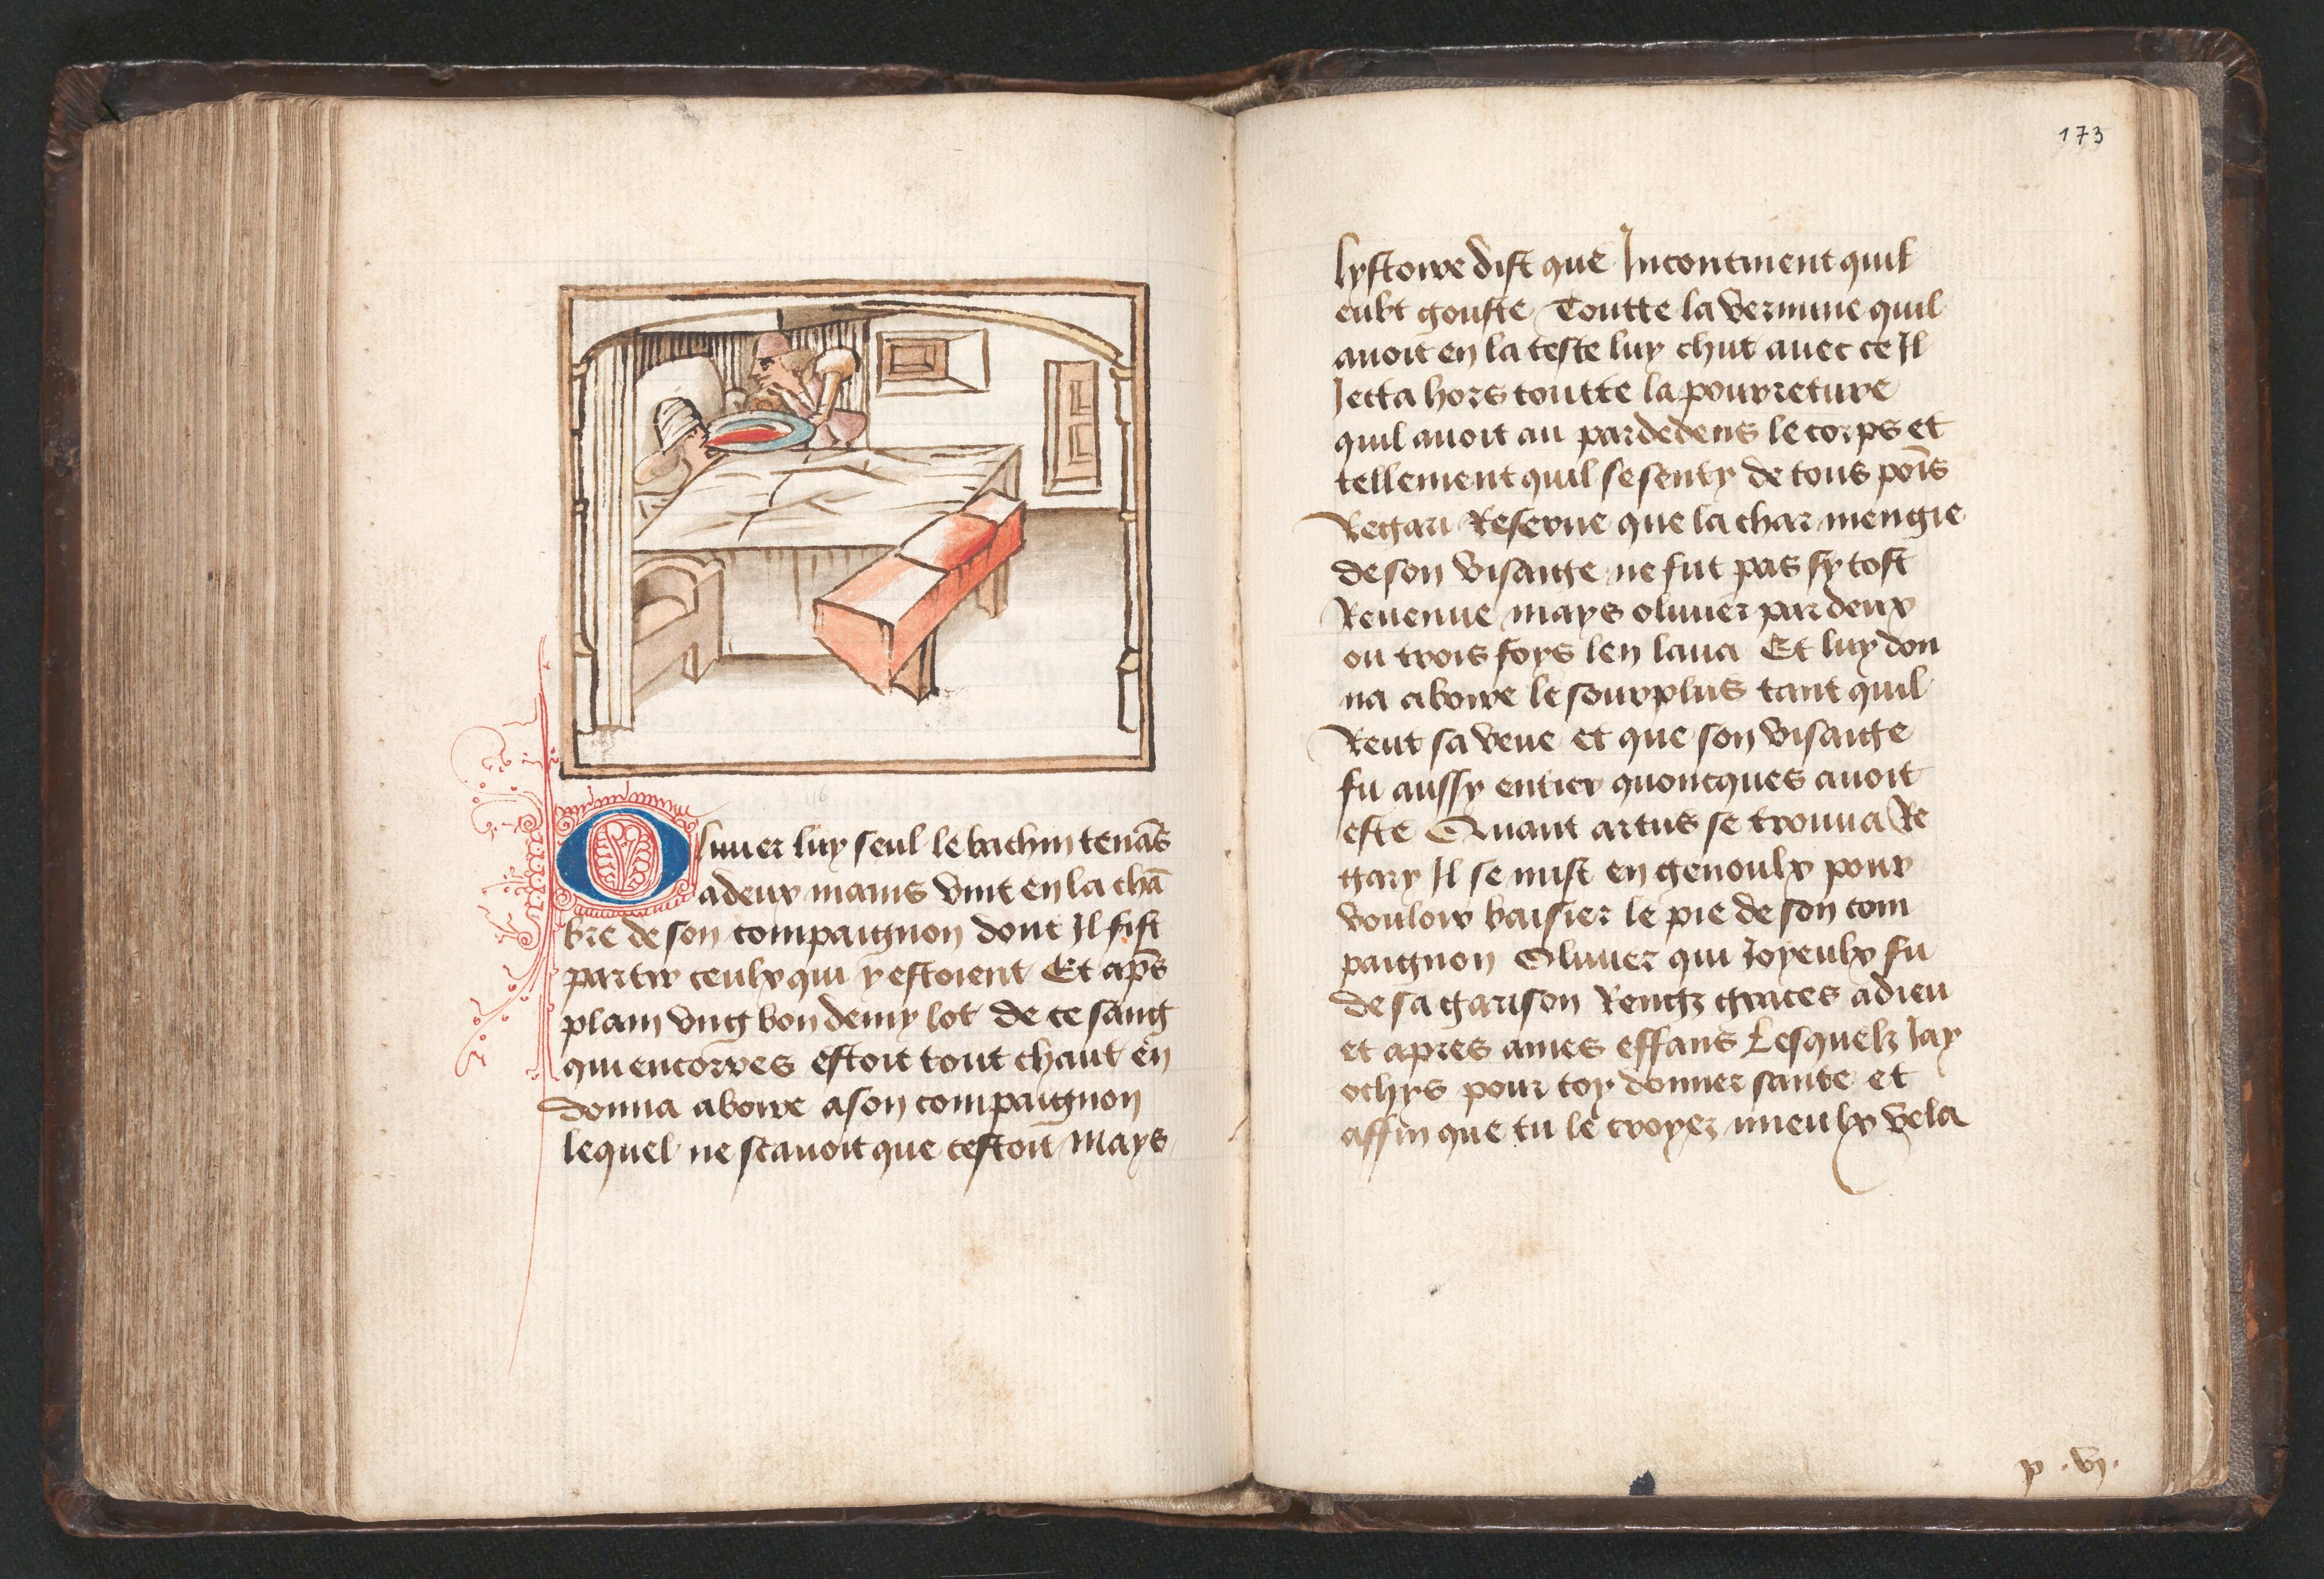 Oliuer luy seul le bachin tenāt
a deux mains vint en la chā
bre de son compaignon dont Il fist
partir ceulx qui y estoient Et ap̄s
plain vng bon demy lot de ce sang
qui encorres estoit tout chaut en
donna aboire a son compaignon
lequel ne scauoit que cestoit Mays
173
lystoire dist que Incontinent quil
eubt gouste Toutte la vermine quil
auoit en la teste luy chut auec ce Il
Jecta hors toutte la pourreture
quil auoit au pardedens le corps et
tellement quil se senty de tous poīs
Regari Reserue que la char mengie
de son visaige ne fut pas sy tost
Reuenue mays oliuier par deux
ou trois foys len laua Et luy don
na aboire le sourplus tant quil
Reut sa veue et que son visaige
fu aussy entier quoncques auoit
este Quant artus se trouua Re
gary Il se mist en genoulx pour
vouloir baisier le pie de son com
paignon Oliuier qui Joyeulx fu
de sa garison Rengz graces a dieu
et apres ames effans Lesquelz Jay
ochys pour toy donner sante et
affin que tu le croyez mieulx vela
p .vj.